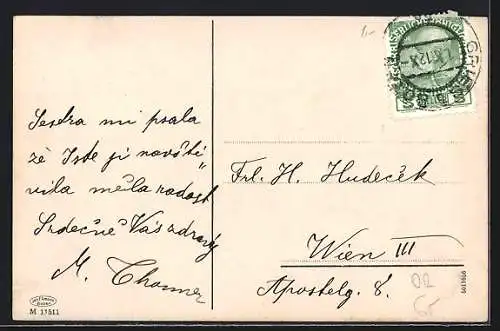 Sestra mi psala
že Jste ji navští„
vila měla radost
Srdečně Vás zdraví
M.
Frl. H. Hudeček
Wien III
Apostelg. 8.
M 11511